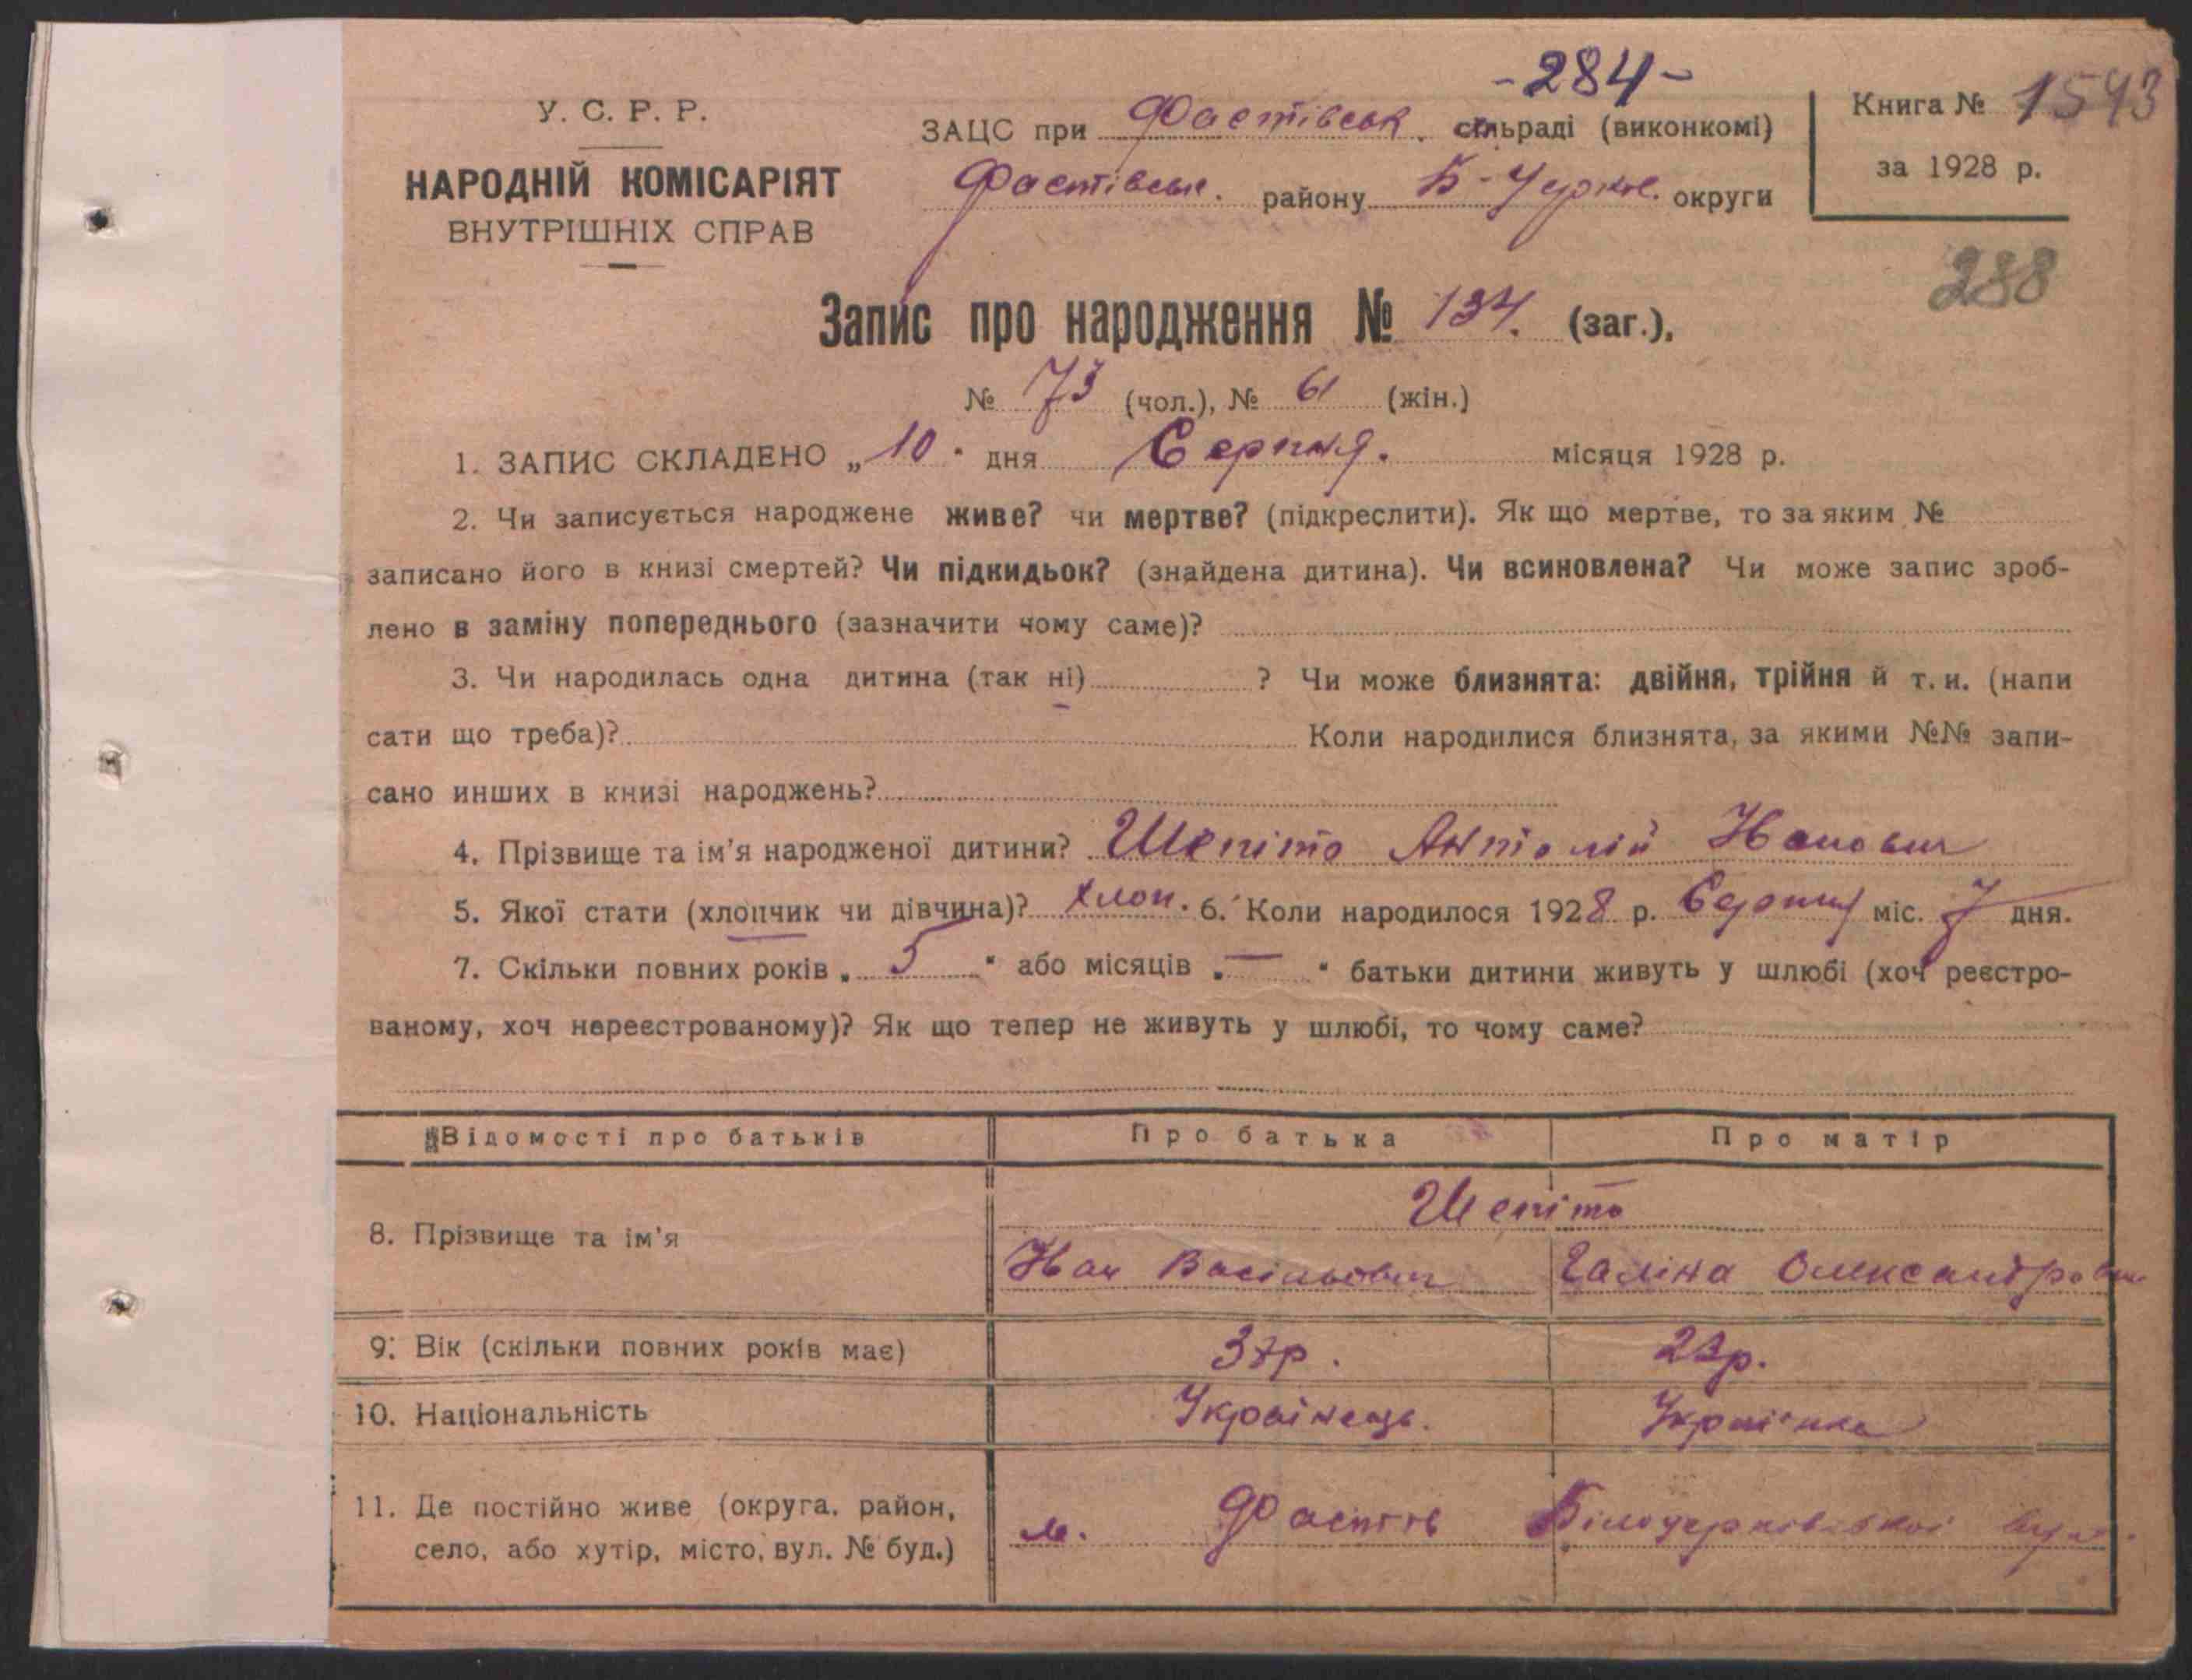 -284-
У. С. Р. Р.
НАРОДНІЙ КОМІСАРІЯТ
ВНУТРІШНІХ СПРАВ
ЗАЦС при Фастівськ. сільраді (виконкомі)
Фастівськ. району Б-Церкв. округи
Книга № 1543
за 1928 р.
288
Запис про народження № 134. (заг.),
№ 73 (чол.), № 61 (жін.)
1. ЗАПИС СКЛАДЕНО „10" дня Серпня. місяця 1928 р.
2. Чи записується народжене живе? чи мертве? (підкреслити). Як що мертве, то за яким №
записано його в книзі смертей? Чи підкидьок? (знайдена дитина). Чи всиновлена? Чи може запис зроб-
лено в заміну попереднього (зазначити чому саме)?
3. Чи народилась одна дитина (так ні) ? Чи може близнята: двійня, трійня й т. и. (напи
сати що треба)? Коли народилися близнята, за якими №№ запи-
сано инших в книзі народжень?
4. Прізвище та ім'я народженої дитини? Шепіто Антолій Іванович
5. Якої стати (хлопчик чи дівчина)? хлоп. 6. Коли народилося 1928 р. Серпня міс. 7 дня.
7. Скільки повних років „ 5 " або місяців „ — " батьки дитини живуть у шлюбі (хоч реєстро-
ваному, хоч нереєстрованому)? Як що тепер не живуть у шлюбі, то чому саме?
Відомості про батьків Про батька Про матір
Шепіто
8. Прізвище та ім'я
Іван Васільович Галіна Олександровна
9. Вік (скільки повних років має) р. р.
10. Національність Українець. Українка
11. Де постійно живе (округа, район,
село, або хутір, місто, вул. № буд.)
м. Фастів Білоцерківської вул.